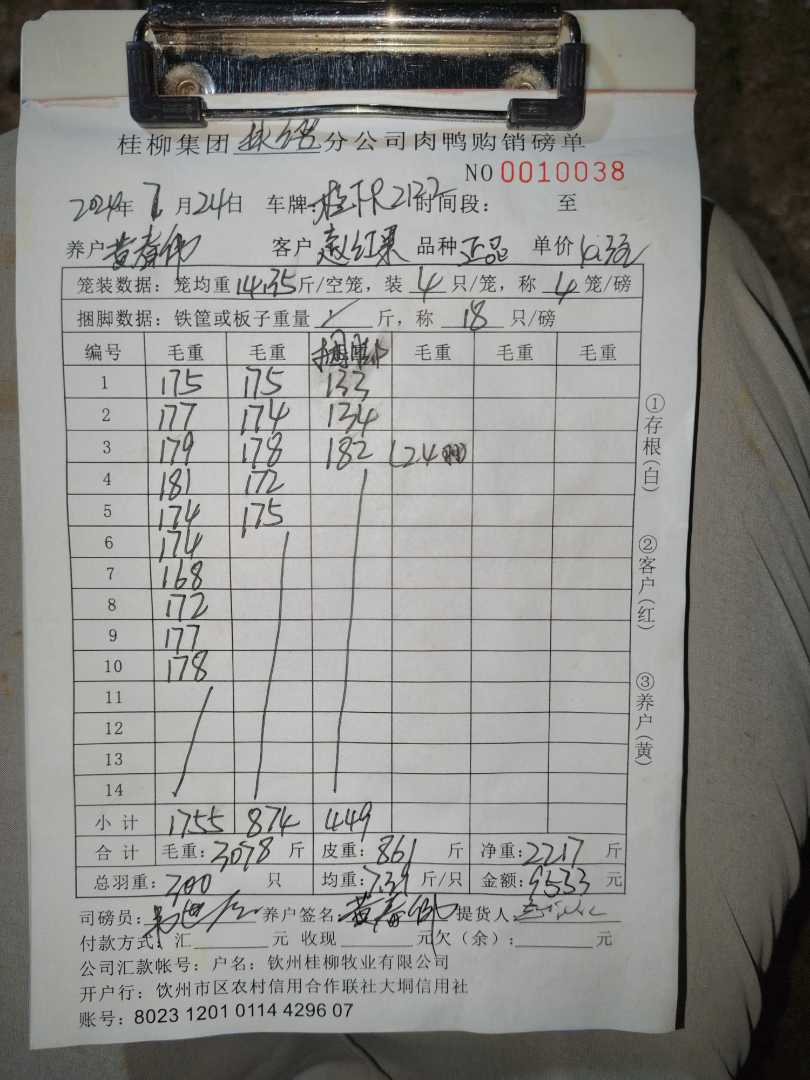 桂柳集团 分公司肉鸭购销磅单
NO 0010038
2024年 7月24日 车牌: 2132 时间段: 至
养户 黄春伟 客户 赵红果 品种 正品 单价
笼装数据: 笼均重 14.35 斤/空笼, 装 4 只/笼, 称 4 笼/磅
捆脚数据: 铁筐或板子重量 / 斤, 称 18 只/磅
编号 毛重 毛重 捆脚 毛重 毛重 毛重
1 175 175 133
2 177 174 134
3 179 178 182 (24
4 181 172
5 174 175
6 174
7 168
8 172
9 177
10 178
11
12
13
14
小计 1755 874 449
合计 毛重: 3078 斤 皮重: 861 斤 净重: 2217 斤
总羽重: 300 只 均重: 7.39 斤/只 金额: 9533 元
司磅员: 养户签名 黄春伟 提货人
付款方式: 汇 元 收现 元欠(余): 元
公司汇款帐号: 户名: 钦州桂柳牧业有限公司
开户行: 钦州市区农村信用合作联社大垌信用社
账号: 8023 1201 0114 4296 07
①存根(白)
②客户(红)
③养户(黄)